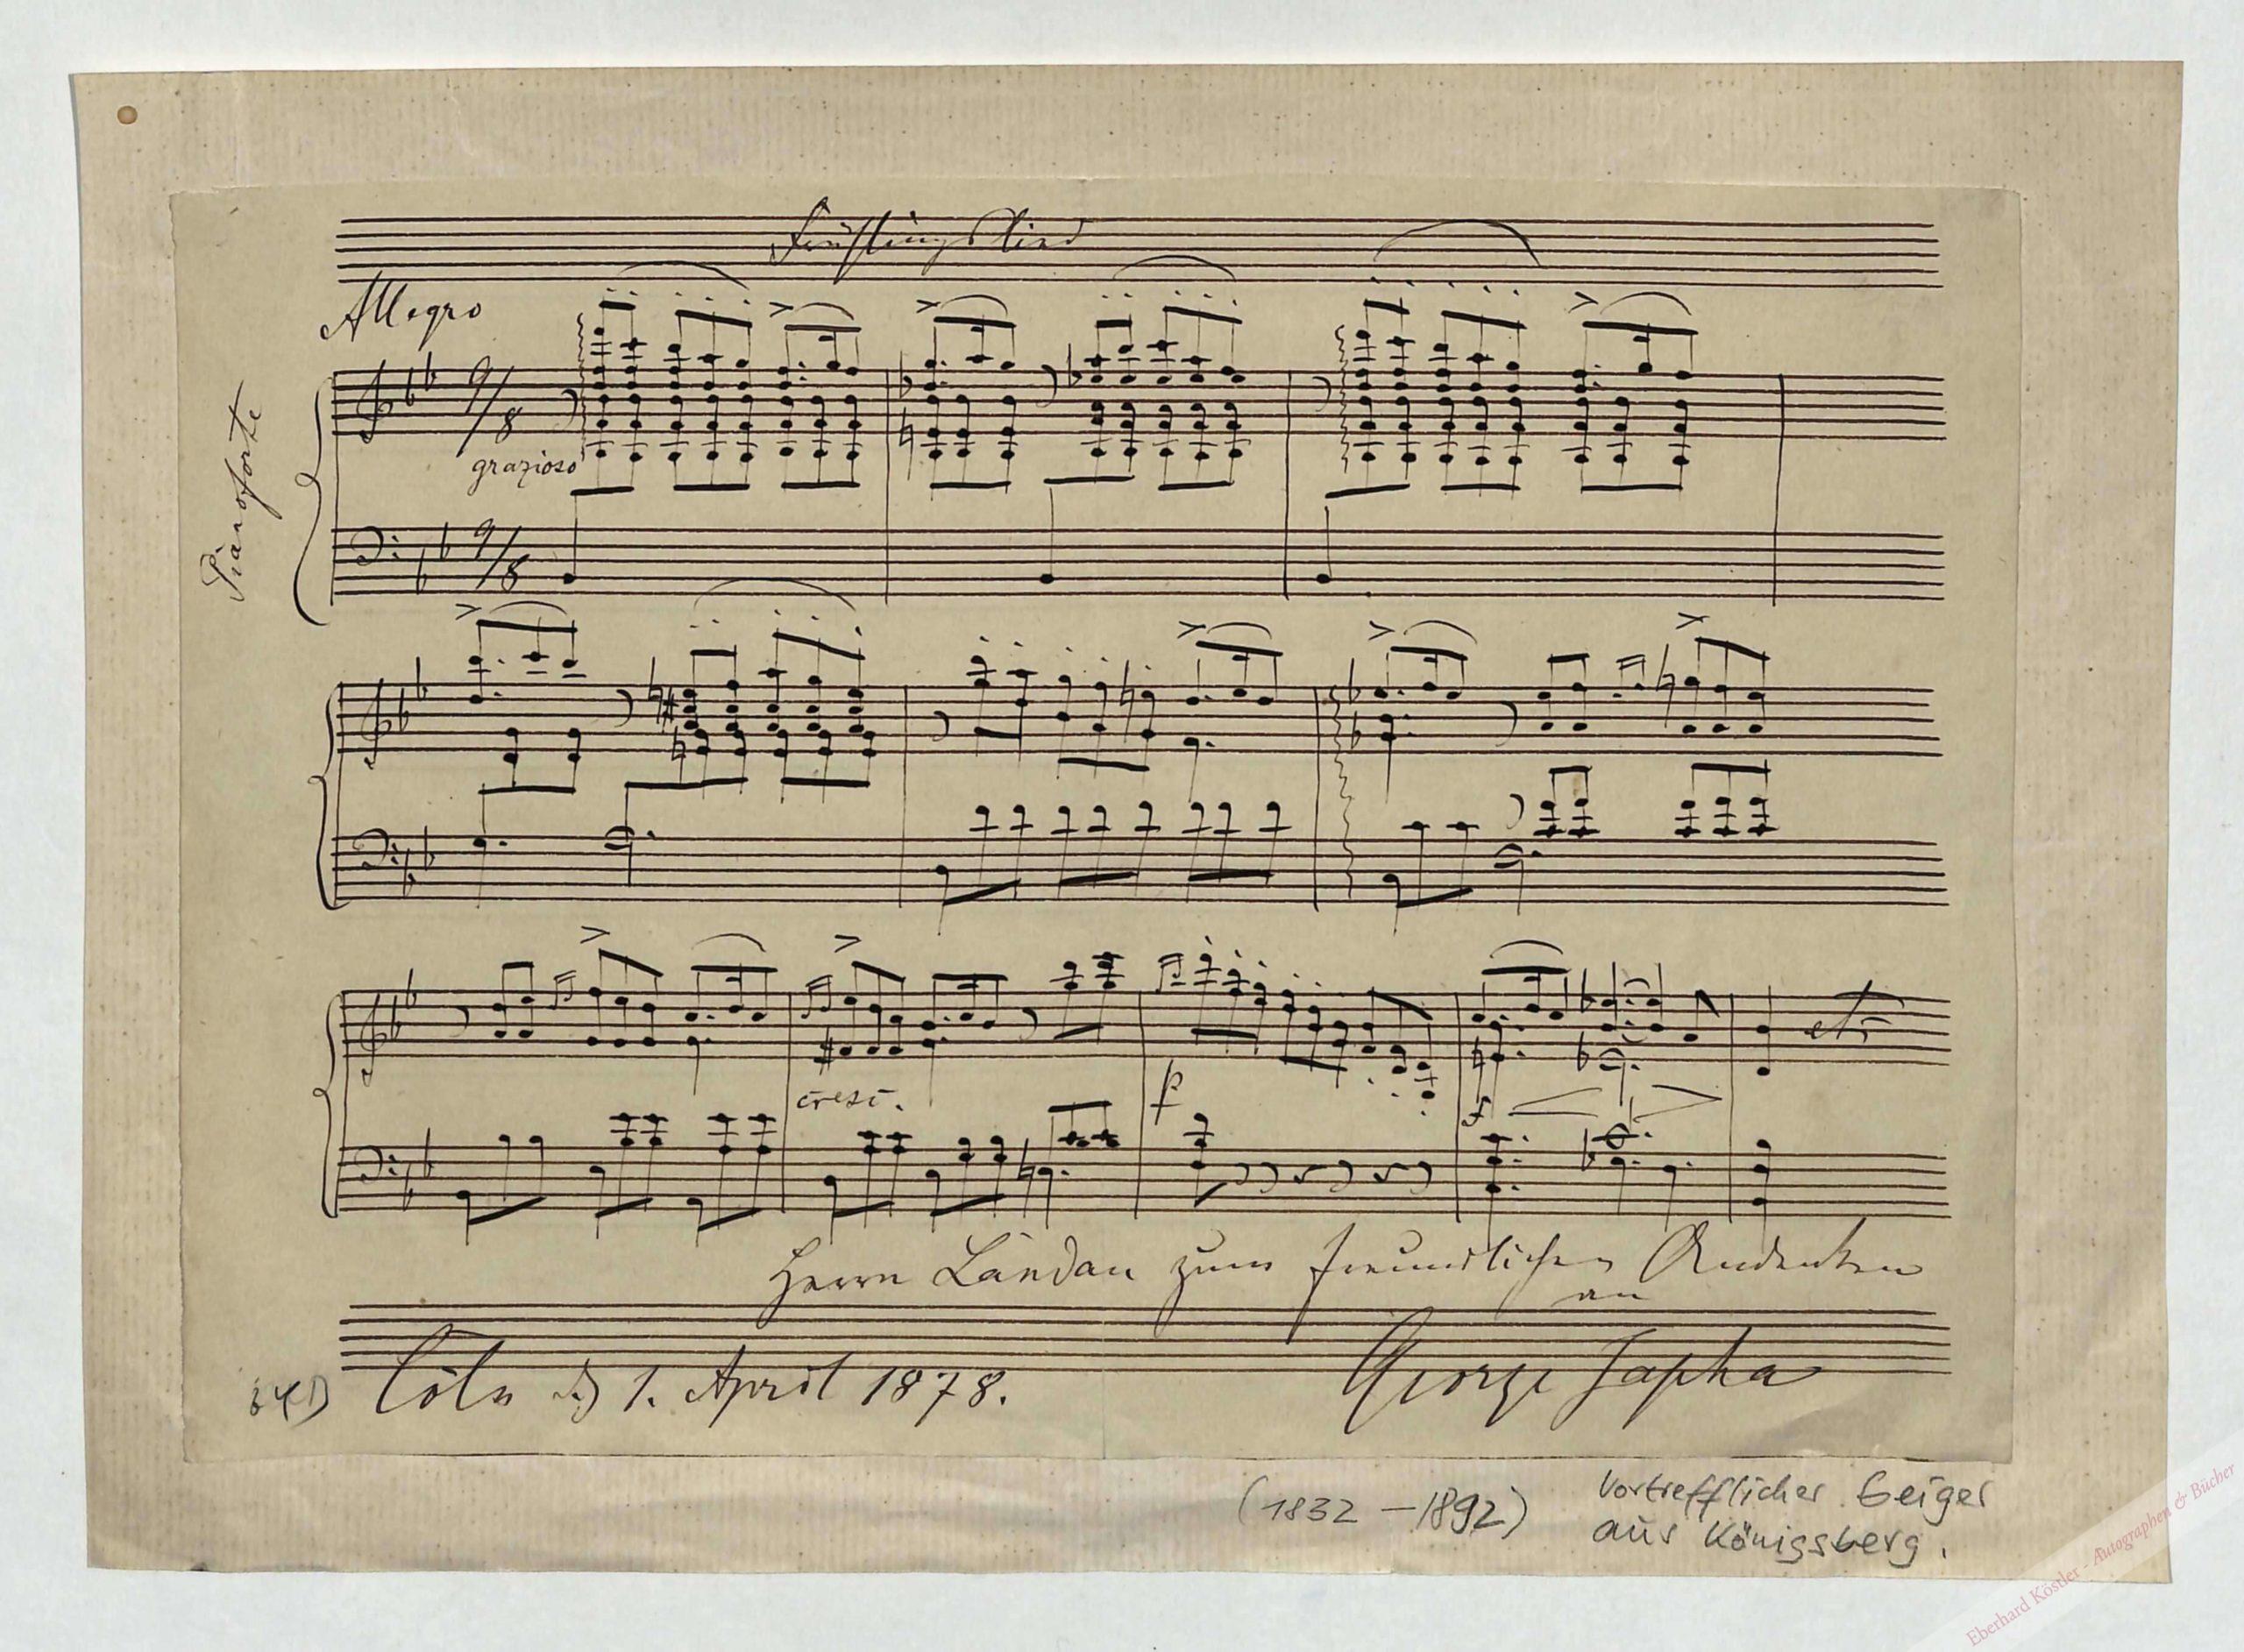 Frühlingslied
Allegro
Pianoforte
9/8
grazioso
9/8
cresc.
p
f
etc
Herrn Landau zum freundlichen Andenken
an
Cöln d. 1. April 1878.
George Japha
(1832 – 1892)
Vortrefflicher Geiger
aus Königsberg.
Eberhard Köstler - Autographen & Bücher